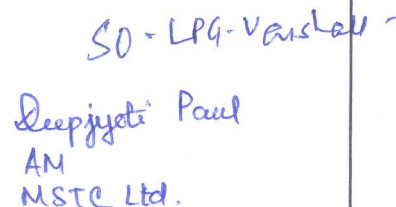 SO - LPG - Vaishali -
Deepjyoti Paul
AM
MSTC Ltd.